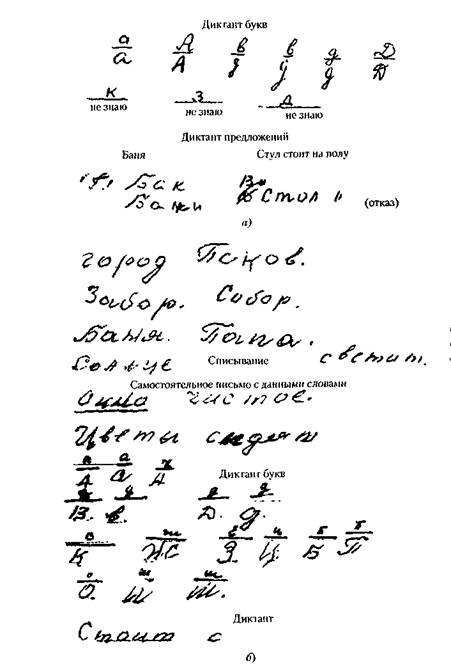 Диктант букв
а А в в д Д
а А д у д Д
к з д
не знаю не знаю не знаю
Диктант предложений
Баня Стул стоит на полу
Бак
Бани Стол (отказ)
а)
город Псков.
Забор. Собор.
Баня. Папа.
Солнце Списывание светит.
Самостоятельное письмо с данными словами
Окно чистое.
Цветы сидят
А а А
Диктант букв
В. в. Д. д.
К Ж З. Ц. Б П
О. Ш Ш.
Диктант
Стоит с
б)